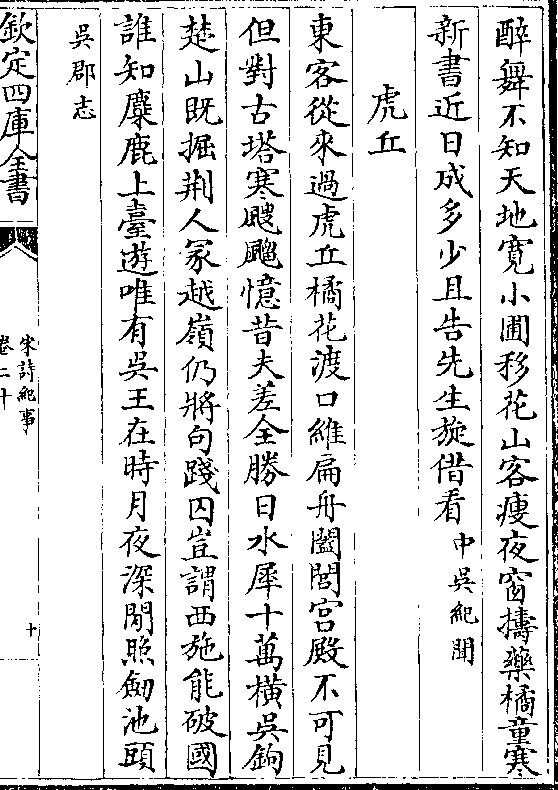 醉舞不知天地寬小圃移花山客瘦夜窗擣藥橘童寒
新書近日成多少且告先生旋借看中吳紀聞
虎丘
東客從來過虎丘橘花渡口維扁舟闔閭宮殿不可見
但對古塔寒颼飀憶昔夫差全勝日水犀十萬橫吳鉤
楚山既掘荆人冢越嶺仍將句踐囚豈謂西施能破國
誰知麋鹿上臺遊唯有吳王在時月夜深閒照劒池頭
吳郡志
欽定四庫全書
宋詩紀事
卷二十
十